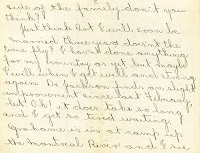 side of the family don't you
think??
Just think Art I will soon be
married three years doesn't the
time fly? I havn't done anything
for my country as yet but maybe
I will when I get well and strong
again. Dr Jackson finds on slight
improvement since last February
but Oh! it does take so long
and I get so tired waiting.
Grahame is in at camp up
the Montreal River and I see